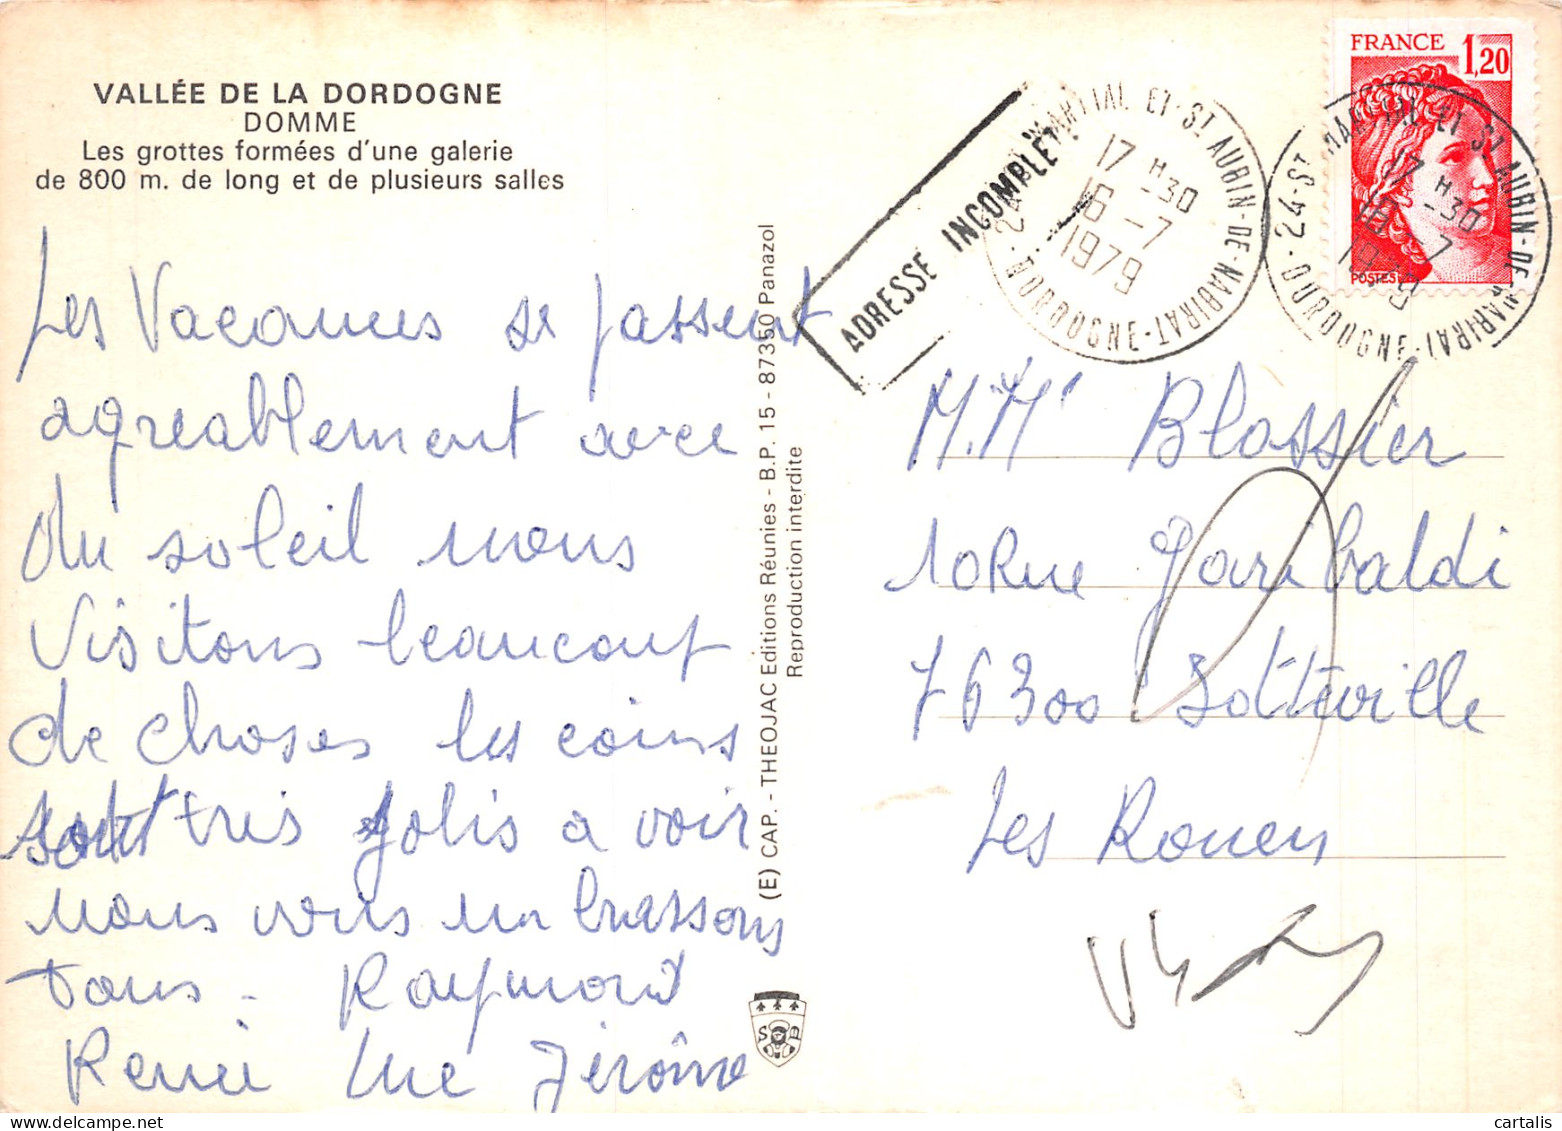 VALLÉE DE LA DORDOGNE
DOMME
Les grottes formées d'une galerie
de 800 m. de long et de plusieurs salles
Les Vacances se passent
agreablement avec
du soleil nous
visitons beaucoup
de choses les coins
sont tres jolis a voir
nous vous embrassons
tous - Raymond
Renée Luc Jérôme
(E) CAP. - THEOJAC Editions Réunies - B.P. 15 - 87350 Panazol
Reproduction interdite
S D
ADRESSE INCOMPLET
24 - MARTIAL ET ST AUBIN-DE-NABIRAT - DORDOGNE
17 H 30
16 - 7
1979
FRANCE 1,20
POSTES
24 - ST MARTIAL ET ST AUBIN-DE-NABIRAT - DORDOGNE
17 H 30
16 - 7
1979
M. Me Blossier
10 Rue Garibaldi
76300 Sotteville
Les Rouen
cartalis